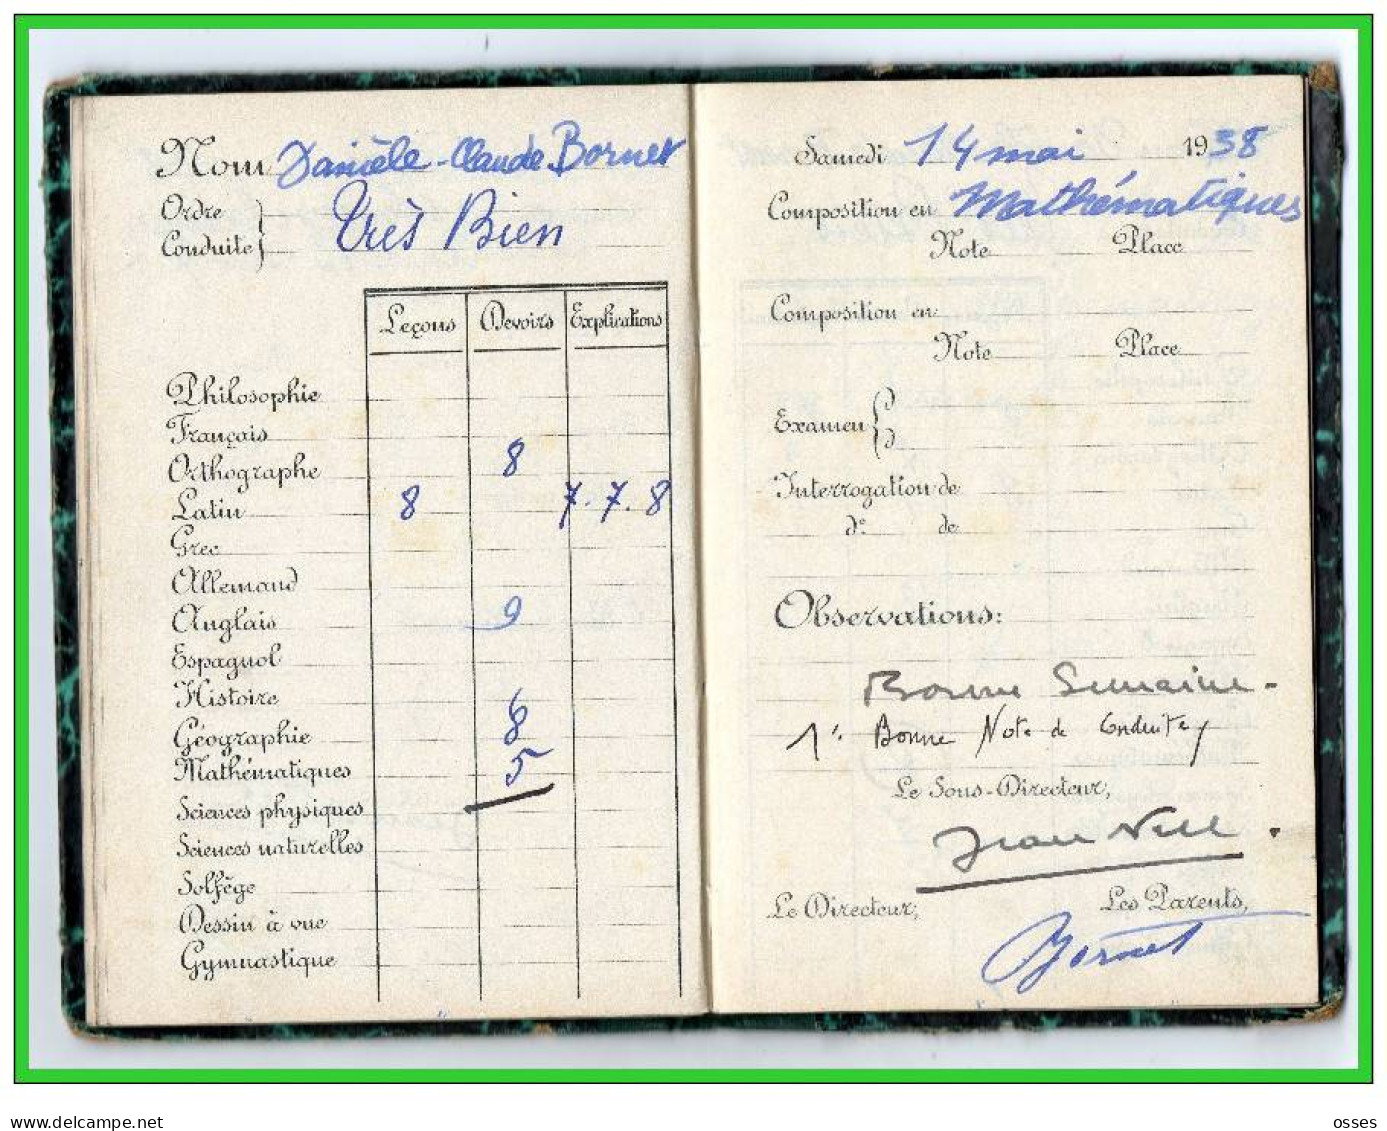 Nom Danièle-Claude Bornet
Ordre
Conduite
Très Bien
Leçons Devoirs Explications
Philosophie
Français
Orthographe 8
Latin 8 7.7.8
Grec
Allemand
Anglais 9
Espagnol
Histoire 6
Géographie 8
Mathématiques 5
Sciences physiques
Sciences naturelles
Solfège
Dessin à vue
Gymnastique
Samedi 14 mai 1938
Composition en Mathématiques
Note Place
Composition en
Note Place
Examen
Interrogation de
d° de
Observations:
Bonne Semaine.
1° Bonne Note de Conduite
Le Sous-Directeur,
Jean
Le Directeur, Les Parents,
Bornet
www.delcampe.net osses